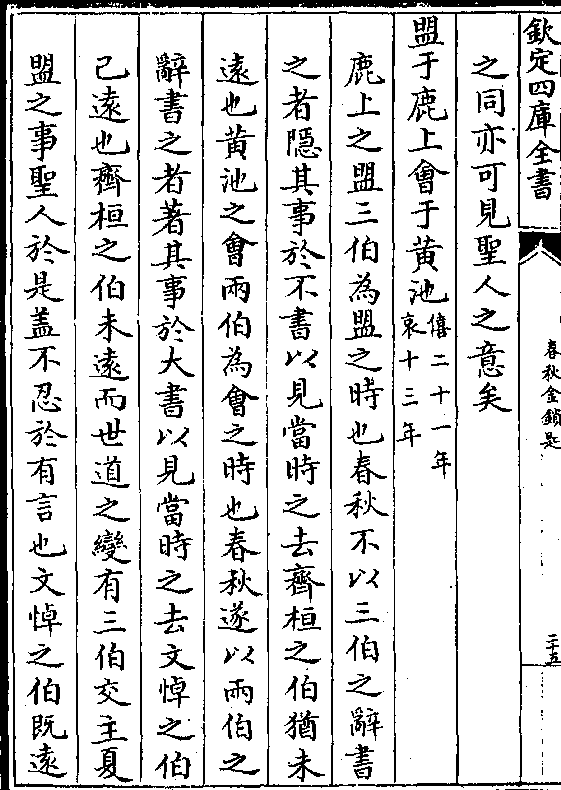 欽定四庫全書
春秋金鎖匙
二十五
之同亦可見聖人之意矣
盟于鹿上會于黃池僖二十一年哀十三年
鹿上之盟三伯為盟之時也春秋不以三伯之辭書
之者隱其事於不書以見當時之去齊桓之伯猶未
遠也黃池之會兩伯為會之時也春秋遂以兩伯之
辭書之者著其事於大書以見當時之去文悼之伯
己遠也齊桓之伯未遠而世道之變有三伯交主夏
盟之事聖人於是盖不忍於有言也文悼之伯既遠